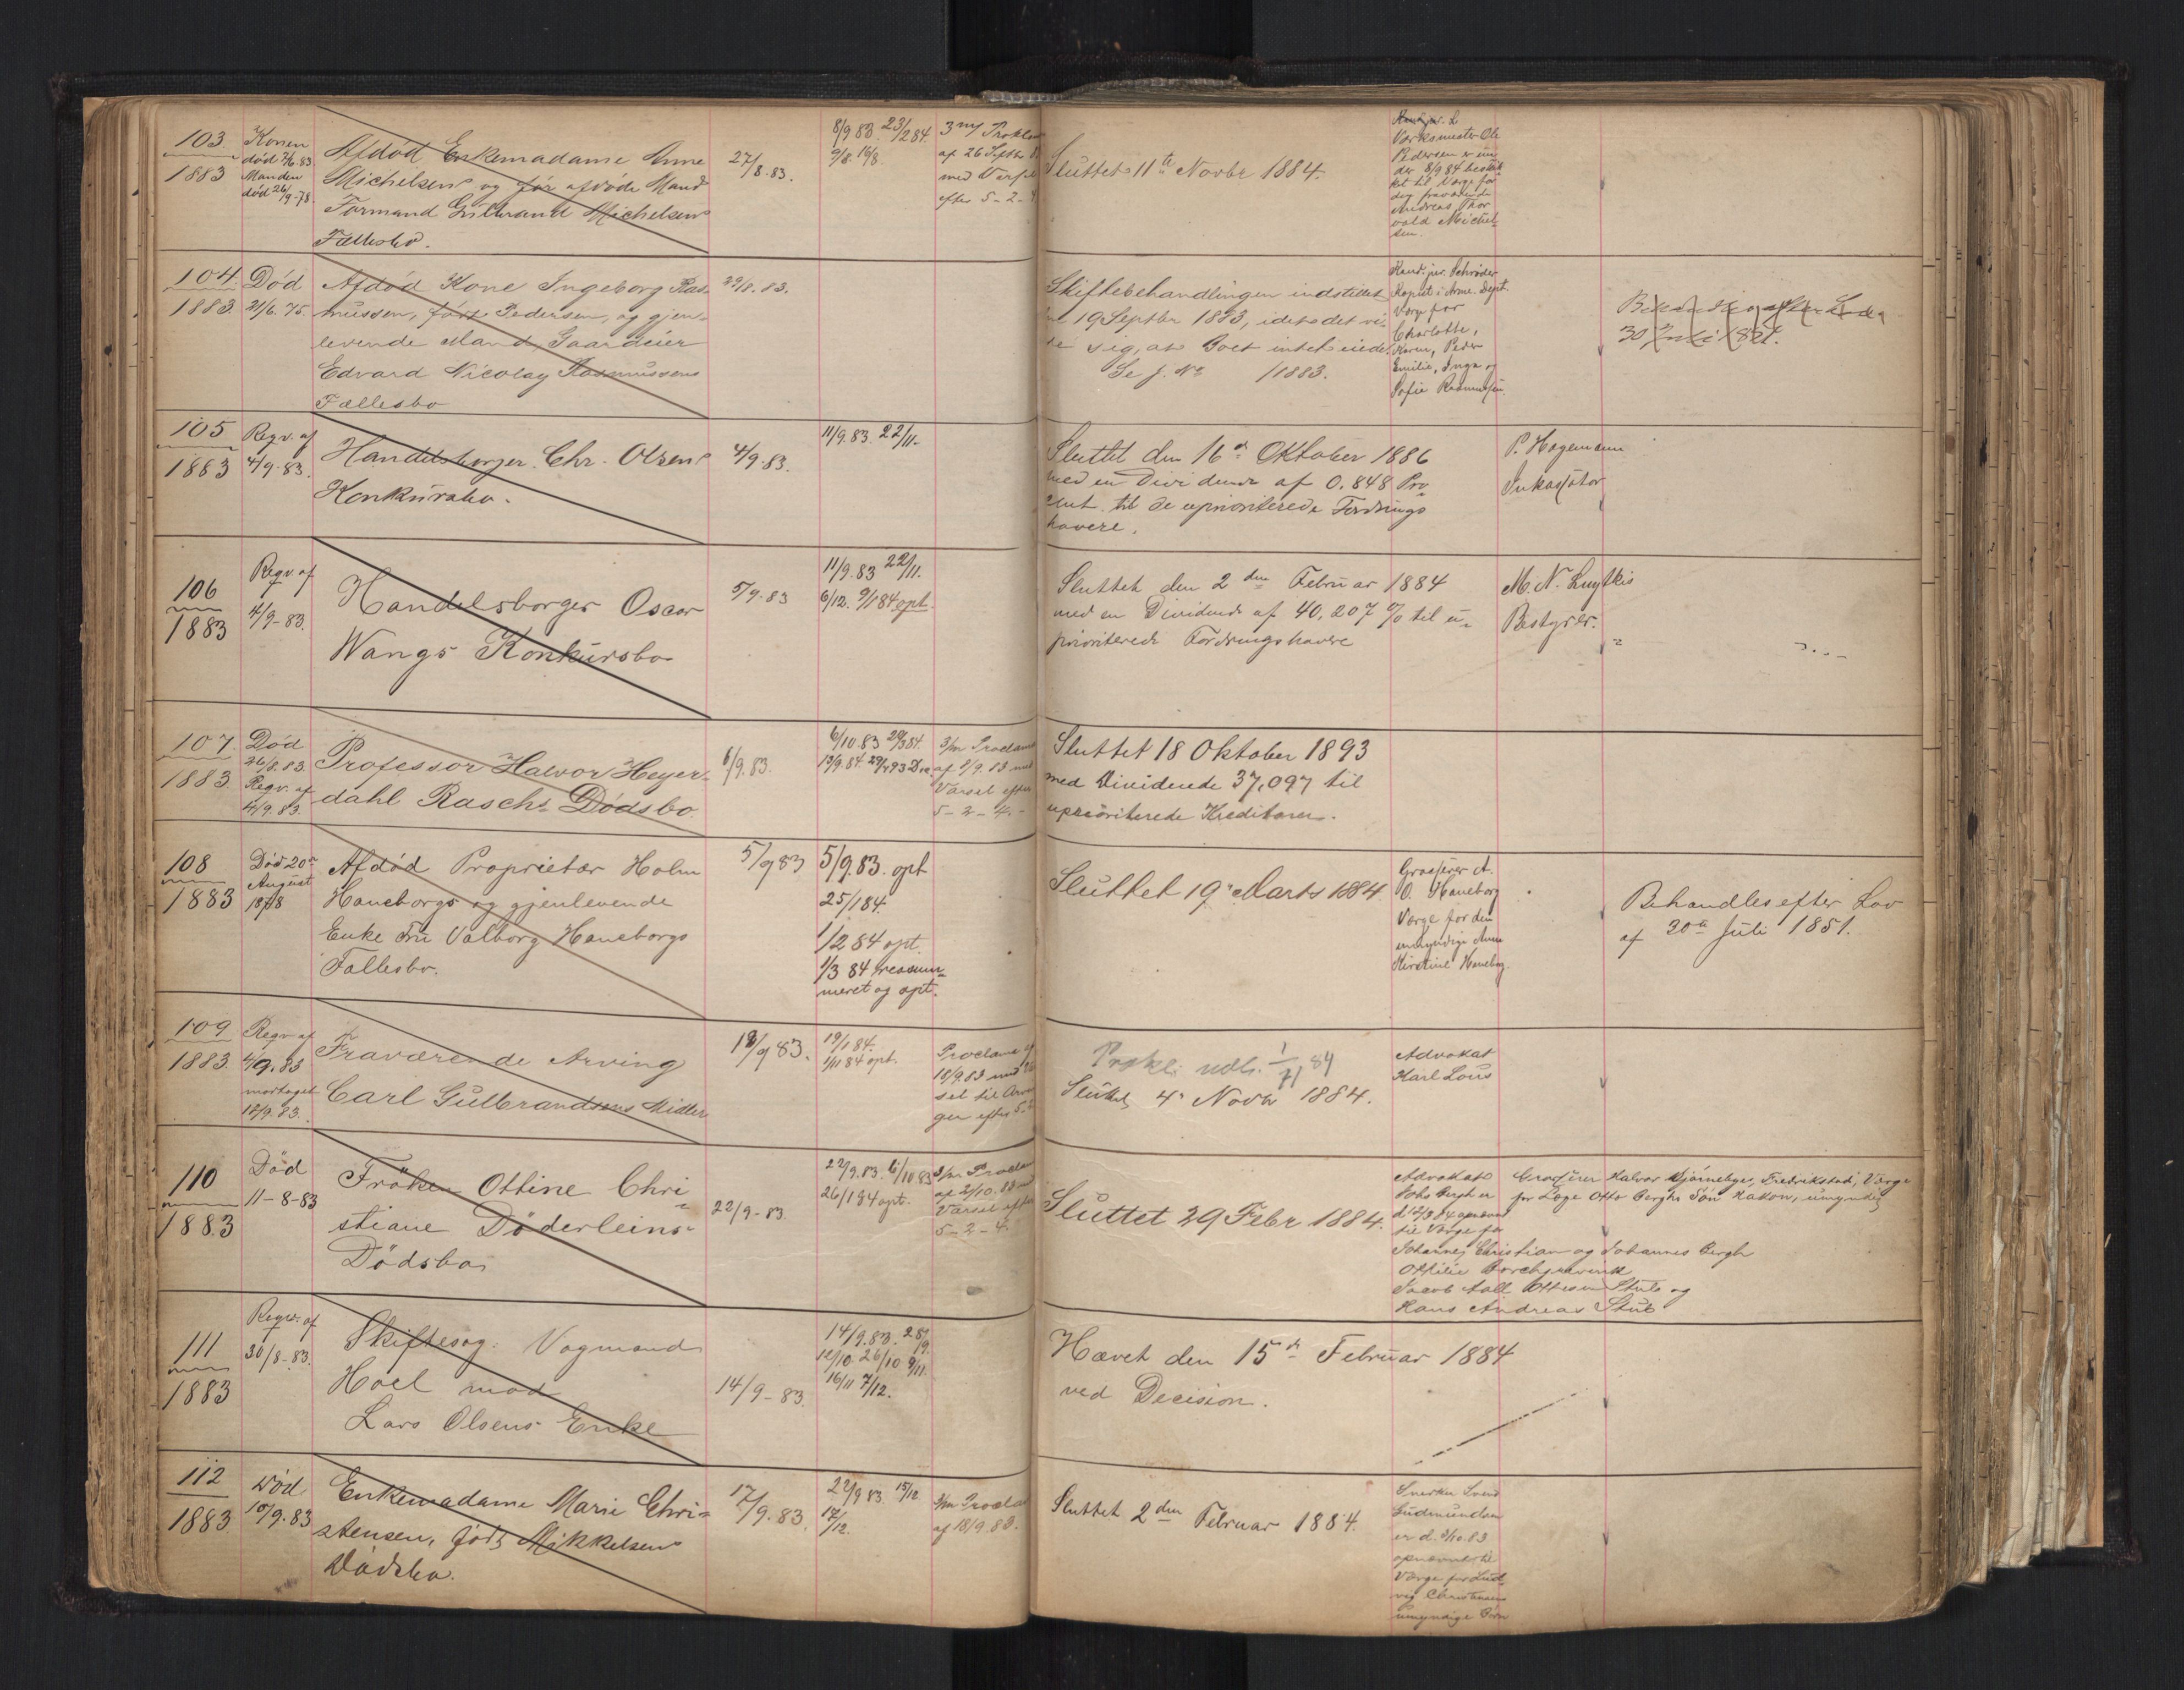 103.
1883
Konen
død 7/6.83
Manden
død 26/9-78.
Afdød Enkemadame Anne
Michelsen og før afdøde Mand
Formand Gulbrand Michelsens
Fællesbo.
27/8.83.
8/9 83. 23/2 84.
9/8. 16/8.
3 m/ Prokla
af 26 Septbr
med Varsel
efter 5-2-4
Sluttet 11te Novbr 1884.
Værksmester Ole
Pedersen er un
der 8/9 84 beskik
ket til Værge for
den fraværende
Andreas Thor
vald Michel-
sen.
104.
1883.
Død
21/6. 75.
Afdød Kone Ingeborg Ras-
mussen, født Pedersen, og gjen-
levende Mand, Gaardeier
Edvard Nicolay Rasmussens
Fællesbo
29/8. 83.
Skiftebehandlingen indstillet
19 Septbr 1883, idet det vi-
sig, at Boet intet eiede.
Se J. No /1883.
Kand. jur. Schrøder
Kopist i Arme. Dept.
Værge for
Charlotte,
Karen, Peder
Emilie, Inga og
Sofie Rasmussen.
30 Juli 1851.
105
1883
Regv. af
4/9.83.
Handelsborger Chr. Olsens
Konkursbo.
4/9.83.
11/9.83. 22/11.
Sluttet den 16de Oktober 1886
med en Dividende af 0.848 Pro
cent til de uprioriterede Fordrings
havere.
P. Hagemann
Inkassator
106
1883
Regv. af
4/9-83.
Handelsborger Oscar
Wangs Konkursbo
5/9.83
11/9.83 22/11.
6/12. 9/1 84 opt.
Sluttet den 2den Februar 1884
med en Dividende af 40,207 % til u-
prioriterede Fordringshavere
M. N. Luytkis
Bestyrer.
107.
1883
Død
26/8.83.
Regv. af
4/9.83.
Professor Halvor Heyer-
dahl Raschs Dødsbo.
6/9.83.
6/10.83 29/3 84.
13/9.84. 29/4 93 Dec.
3/m Proclama
af 8/9. 83 med
Varsel efter
5-2-4.-
Sluttet 18 Oktober 1893
med Dividende 37,097 til
uprioriterede Kreditorer.
108
1883
Død 20de
August
1878
Afdød Proprietær Holm
Haneborgs og gjenlevende
Enke Fru Valborg Haneborgs
Fællesbo.
5/9 83
5/9.83. opt
25/1 84.
1/2 84 opt
1/3 84 reassum-
meret og opt.
Sluttet 19de Marts 1884.
Grosserer A.
O. Haneborg
Værge for den
umyndige Anne
Kirstine Haneborg.
Behandles efter Lov
af 30te Juli 1851.
109
1883.
Regv. af
4/9.83
modtaget
12/9.83.
Fraværende Arving
Carl Gulbrandsens Midler
18/9 83.
19/1 84.
1/11 84 opt.
Proclama af
18/9.83 med
sel til Arvin
ger efter 5-2
Prokl. udl. 1/71 84
Sluttet 4de Novbr 1884.
Advokat
Karl Lous
110
1883
Død
11-8-83
Frøken Ottine Chri
stiane Döderleins-
Dødsbo
22/9-83.
22/9.83. 6/10 83
26/1 84 opt.
3/m Proclam
af 2/10.83 med
Varsel efter
5-2-4.
Sluttet 29 Febr 1884.
Advokat
Johs Bergh er
d 12/3 84 opnævnt
til Værge for
Johannes Christian og Johannes Bergh
Ottilie Borchgrevink
Jacob Aall Ottesen Stub og
Hans Andreas Stub
Grosserer Halvor Bjørneby, Fredrikstad, Værge
for Læge Otto Berghs Søn Hakon, umyndig
111
1883
Regv. af
30/8-83.
Skiftesag: Vognmand
Hoel mod
Lars Olsens Enke
14/9-83.
14/9.83. 28/9.
12/10. 26/10 9/11.
16/11 7/12.
Hævet den 15de Februar 1884
ved Decision.
112
1883
Død
10/9.83
Enkemadame Marie Chri-
stensen, født Mikkelsens
Dødsbo.
17/9.83.
22/9 83. 15/12
17/12.
3/m Procla
af 18/9.83.
Sluttet 2den Februar 1884.
Snekker Svend
Gudmundsen
er d. 3/10.83
opnævnt til
Værge for Lud-
vig Christensens
umyndige Børn